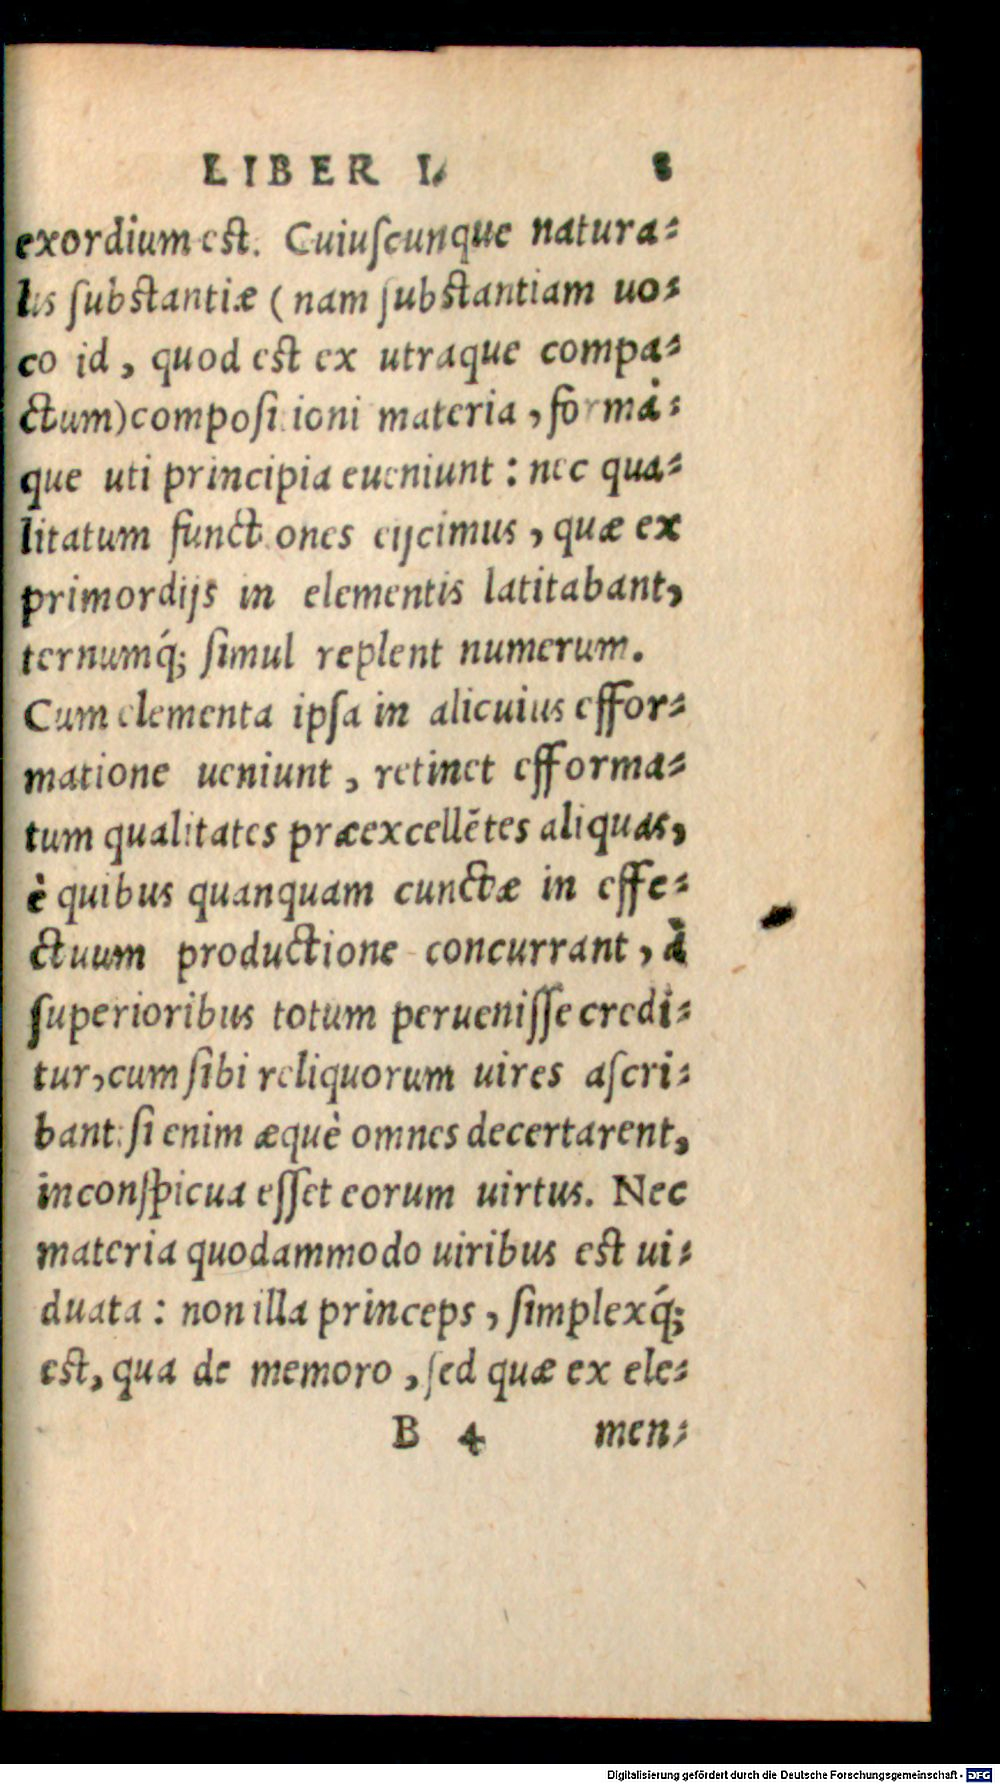 LIBER I. 8
exordium est. Cuiuſcunque natura-
lis ſubstantiæ (nam ſubstantiam uo-
co id, quod est ex utraque compa-
ctum) compoſitioni materia, formá-
que uti principia eueniunt: nec qua-
litatum functiones eijcimus, quæ ex
primordijs in elementis latitabant,
ternumq́; ſimul replent numerum.
Cum elementa ipſa in alicuius effor-
matione ueniunt, retinet efforma-
tum qualitates præexcellẽtes aliquas,
è quibus quanquam cunctæ in effe-
ctuum productione concurrant, à
ſuperioribus totum perueniſſe credi-
tur, cum ſibi reliquorum uires aſcri-
bant: ſi enim æquè omnes decertarent,
inconſpicua eſſet eorum uirtus. Nec
materia quodammodo uiribus est ui-
duata: non illa princeps, ſimplexq́;
est, qua de memoro, ſed quæ ex ele-
B 4 men-
Digitalisierung gefördert durch die Deutsche Forschungsgemeinschaft - DFG